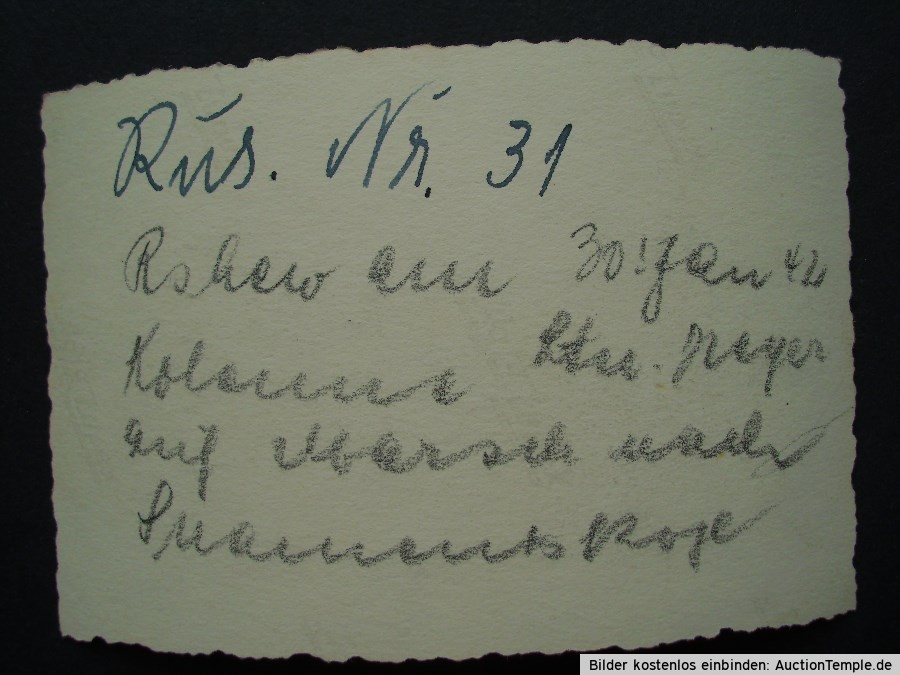 Rus. Nr. 31
Rshew am 30. Jan 42
Kolonne Ltn. Meyer
auf Marsch nach
Snamenskoje
Bilder kostenlos einbinden: AuctionTemple.de